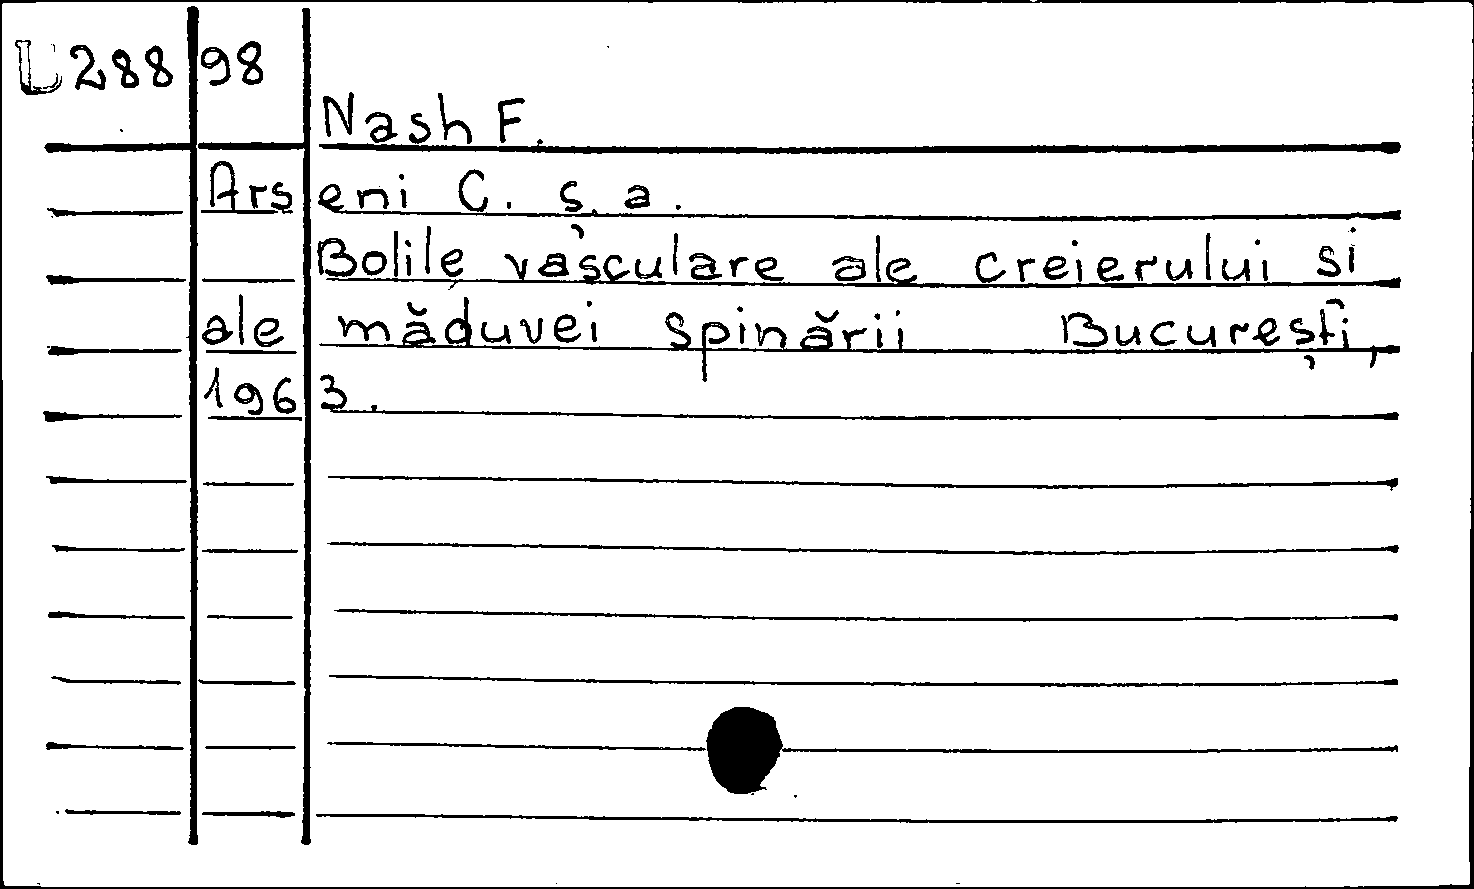 L 28898
Nash F.
Arseni C. ș. a.
Bolile vasculare ale creierului si
ale măduvei spinării București,
1963.